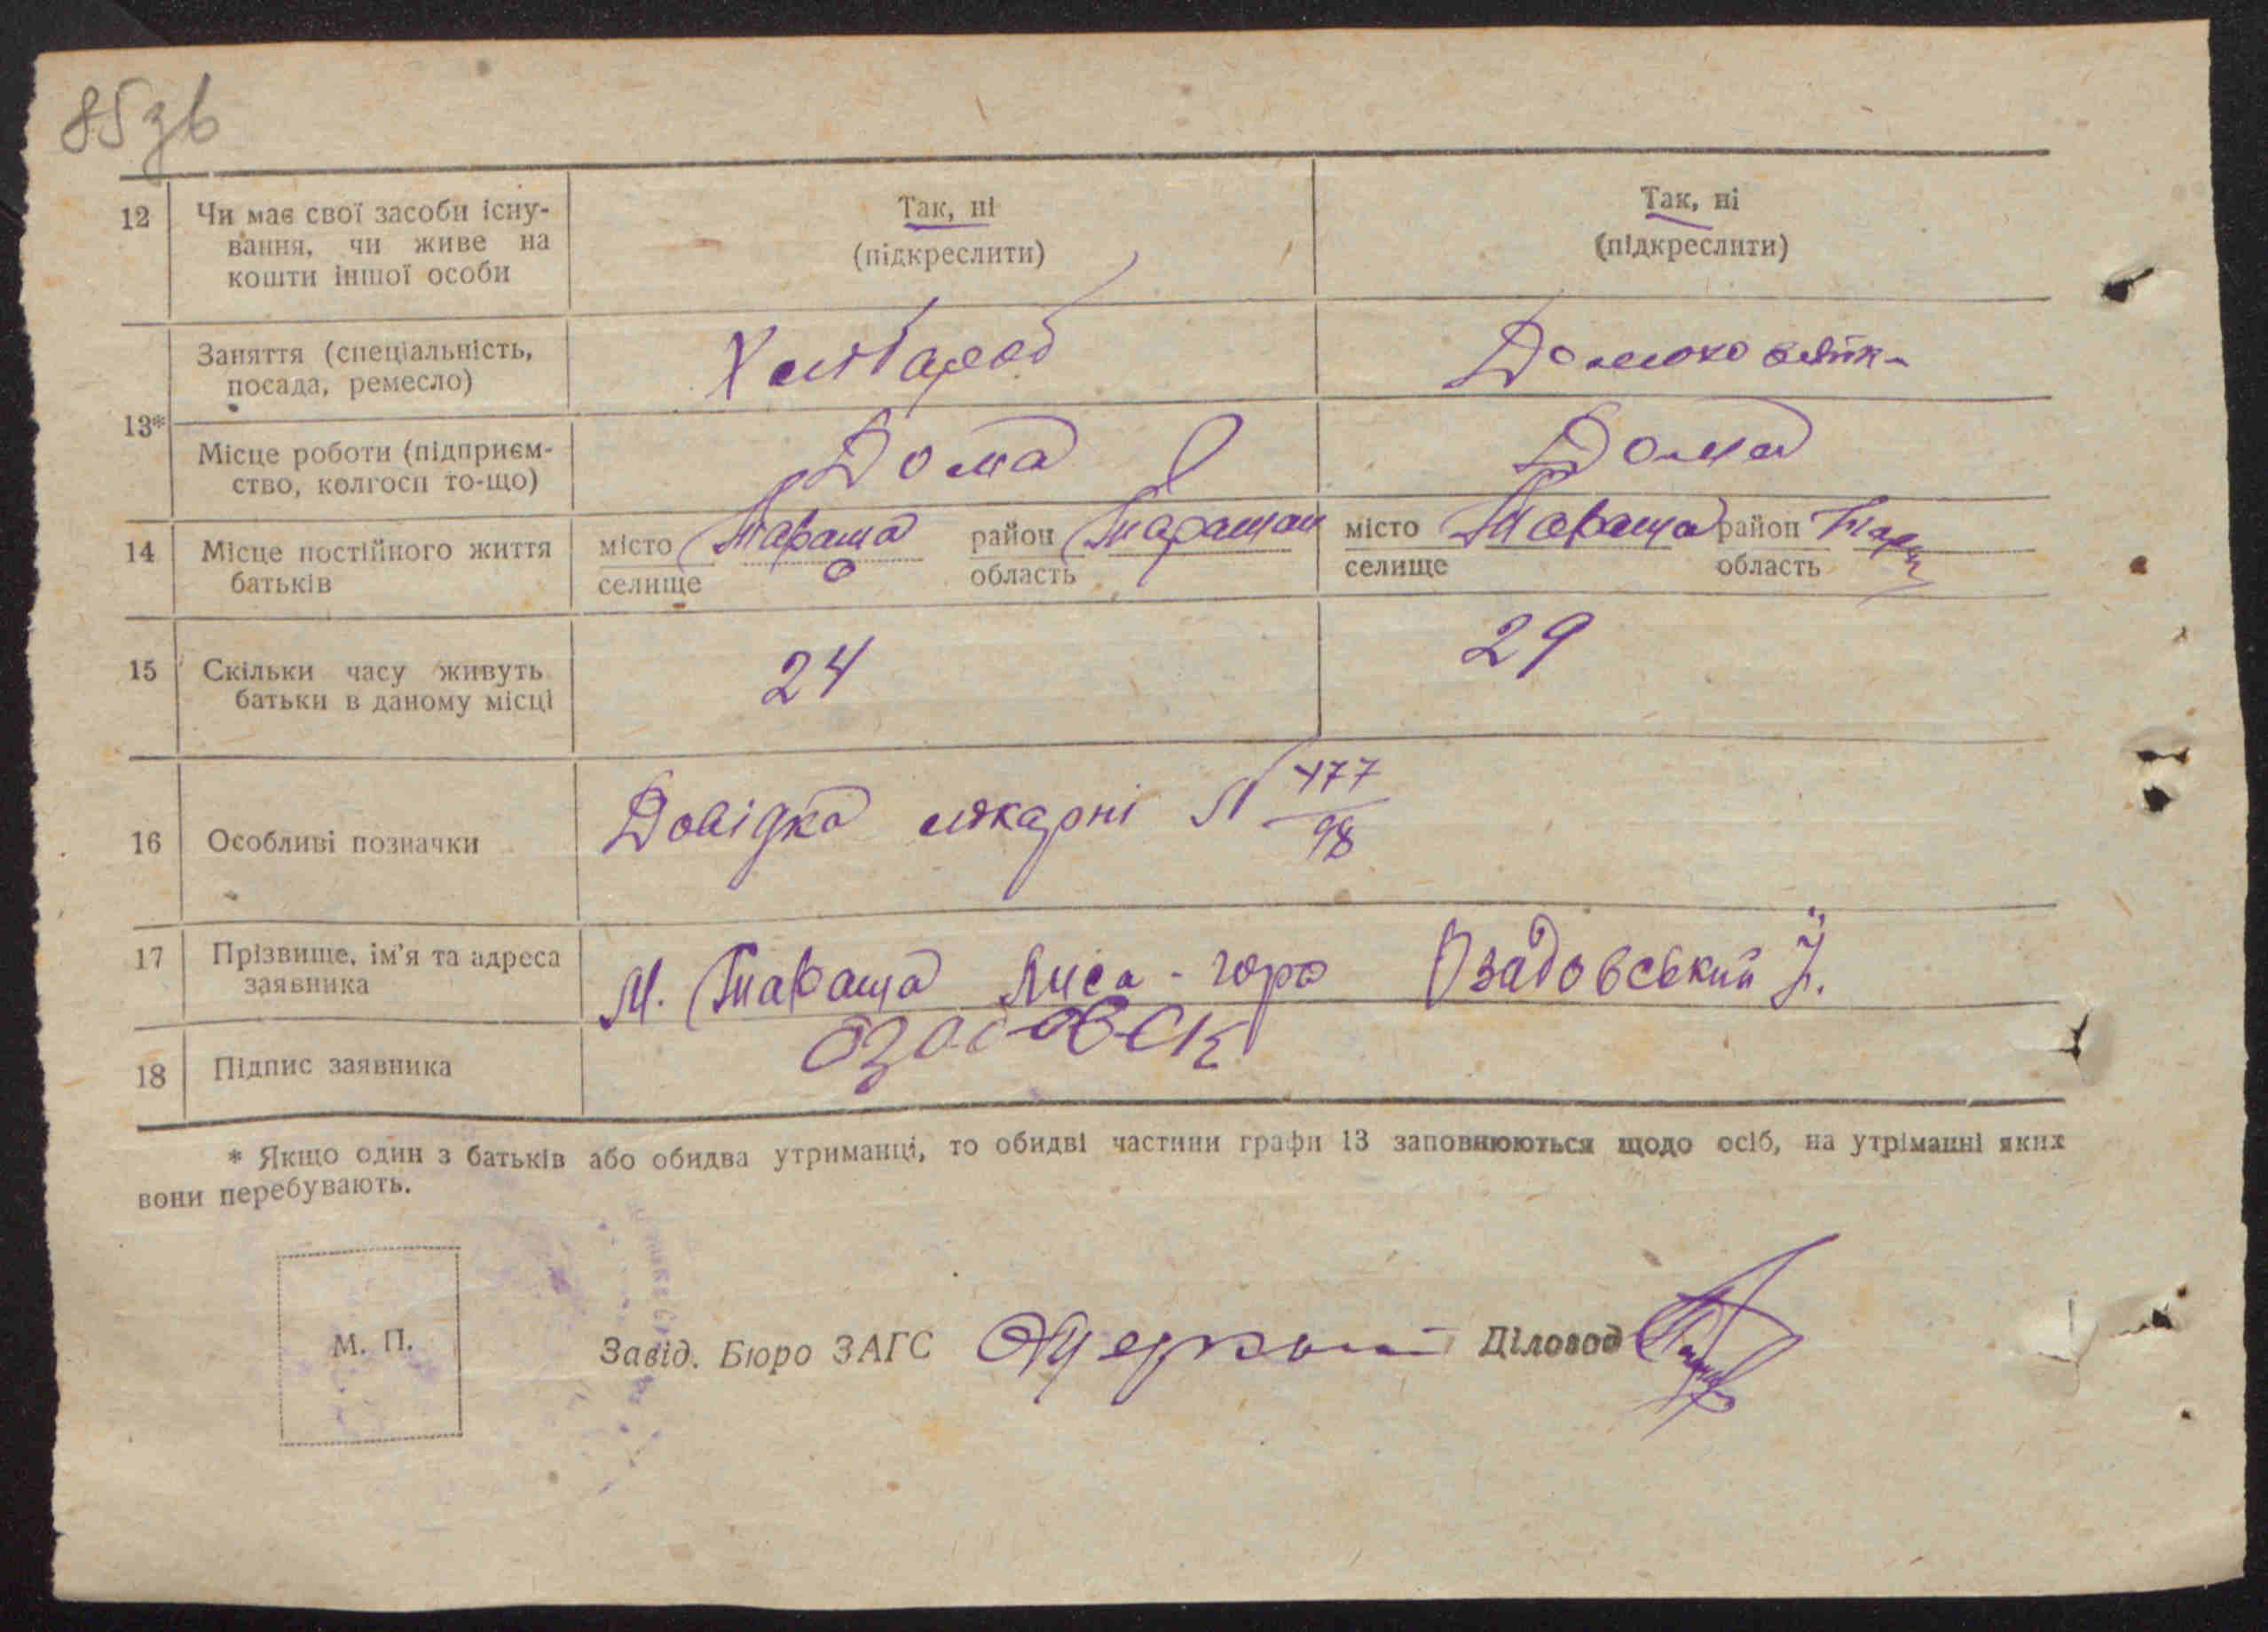 85 зв
12 Чи має свої засоби існу- Так, ні Так, ні
вання, чи живе на (підкреслити) (підкреслити)
кошти іншої особи
Заняття (спеціальність, Хлібороб
посада, ремесло)
13*
Місце роботи (підприєм- Дома Дома
ство, колгосп то-що)
14 Місце постійного життя місто Тараща район Таращан місто Тараща район Таращ
батьків селище область селище область
15 Скільки часу живуть 24 29
батьки в даному місці
16 Особливі позначки Довідка лікарні № 477/98
17 Прізвище, ім'я та адреса М. Тараща Лиса-гора Озадовський Й.
заявника
18 Підпис заявника
* Якщо один з батьків або обидва утриманці, то обидві частини графи 13 заповнюються щодо осіб, на утріманні яких
вони перебувають.
М. П. Завід. Бюро ЗАГС Діловод